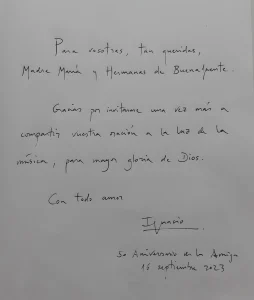 Para vosotras, tan queridas,
Madre María y Hermanas de Buenafuente.
Gracias por invitarme una vez más a
compartir vuestra oración a la luz de la
música, para mayor gloria de Dios.
Con todo amor
Ignacio
50 Aniversario de la
16 septiembre 2023